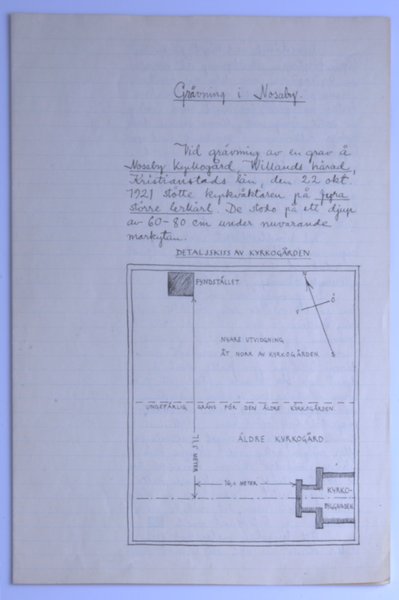 Grävning i Nosaby.
Vid grävning av en grav å
Nosaby Kyrkogård, Willands härad,
Kristianstads län, den 22 okt.
1921 stötte kyrkväktaren på fyra
större lerkärl. De stodo på ett djup
av 60-80 cm under nuvarande
markytan.
DETALJSKISS AV KYRKOGÅRDEN
FYNDSTÄLLET
Ö
V
S
NYARE UTVIDGNING
ÅT NORR AV KYRKOGÅRDEN
UNGEFÄRLIG GRÄNS FÖR DEN ÄLDRE KYRKOGÅRDEN.
ÄLDRE KYRKOGÅRD.
METER
METER
KYRKO-
BYGGNADEN